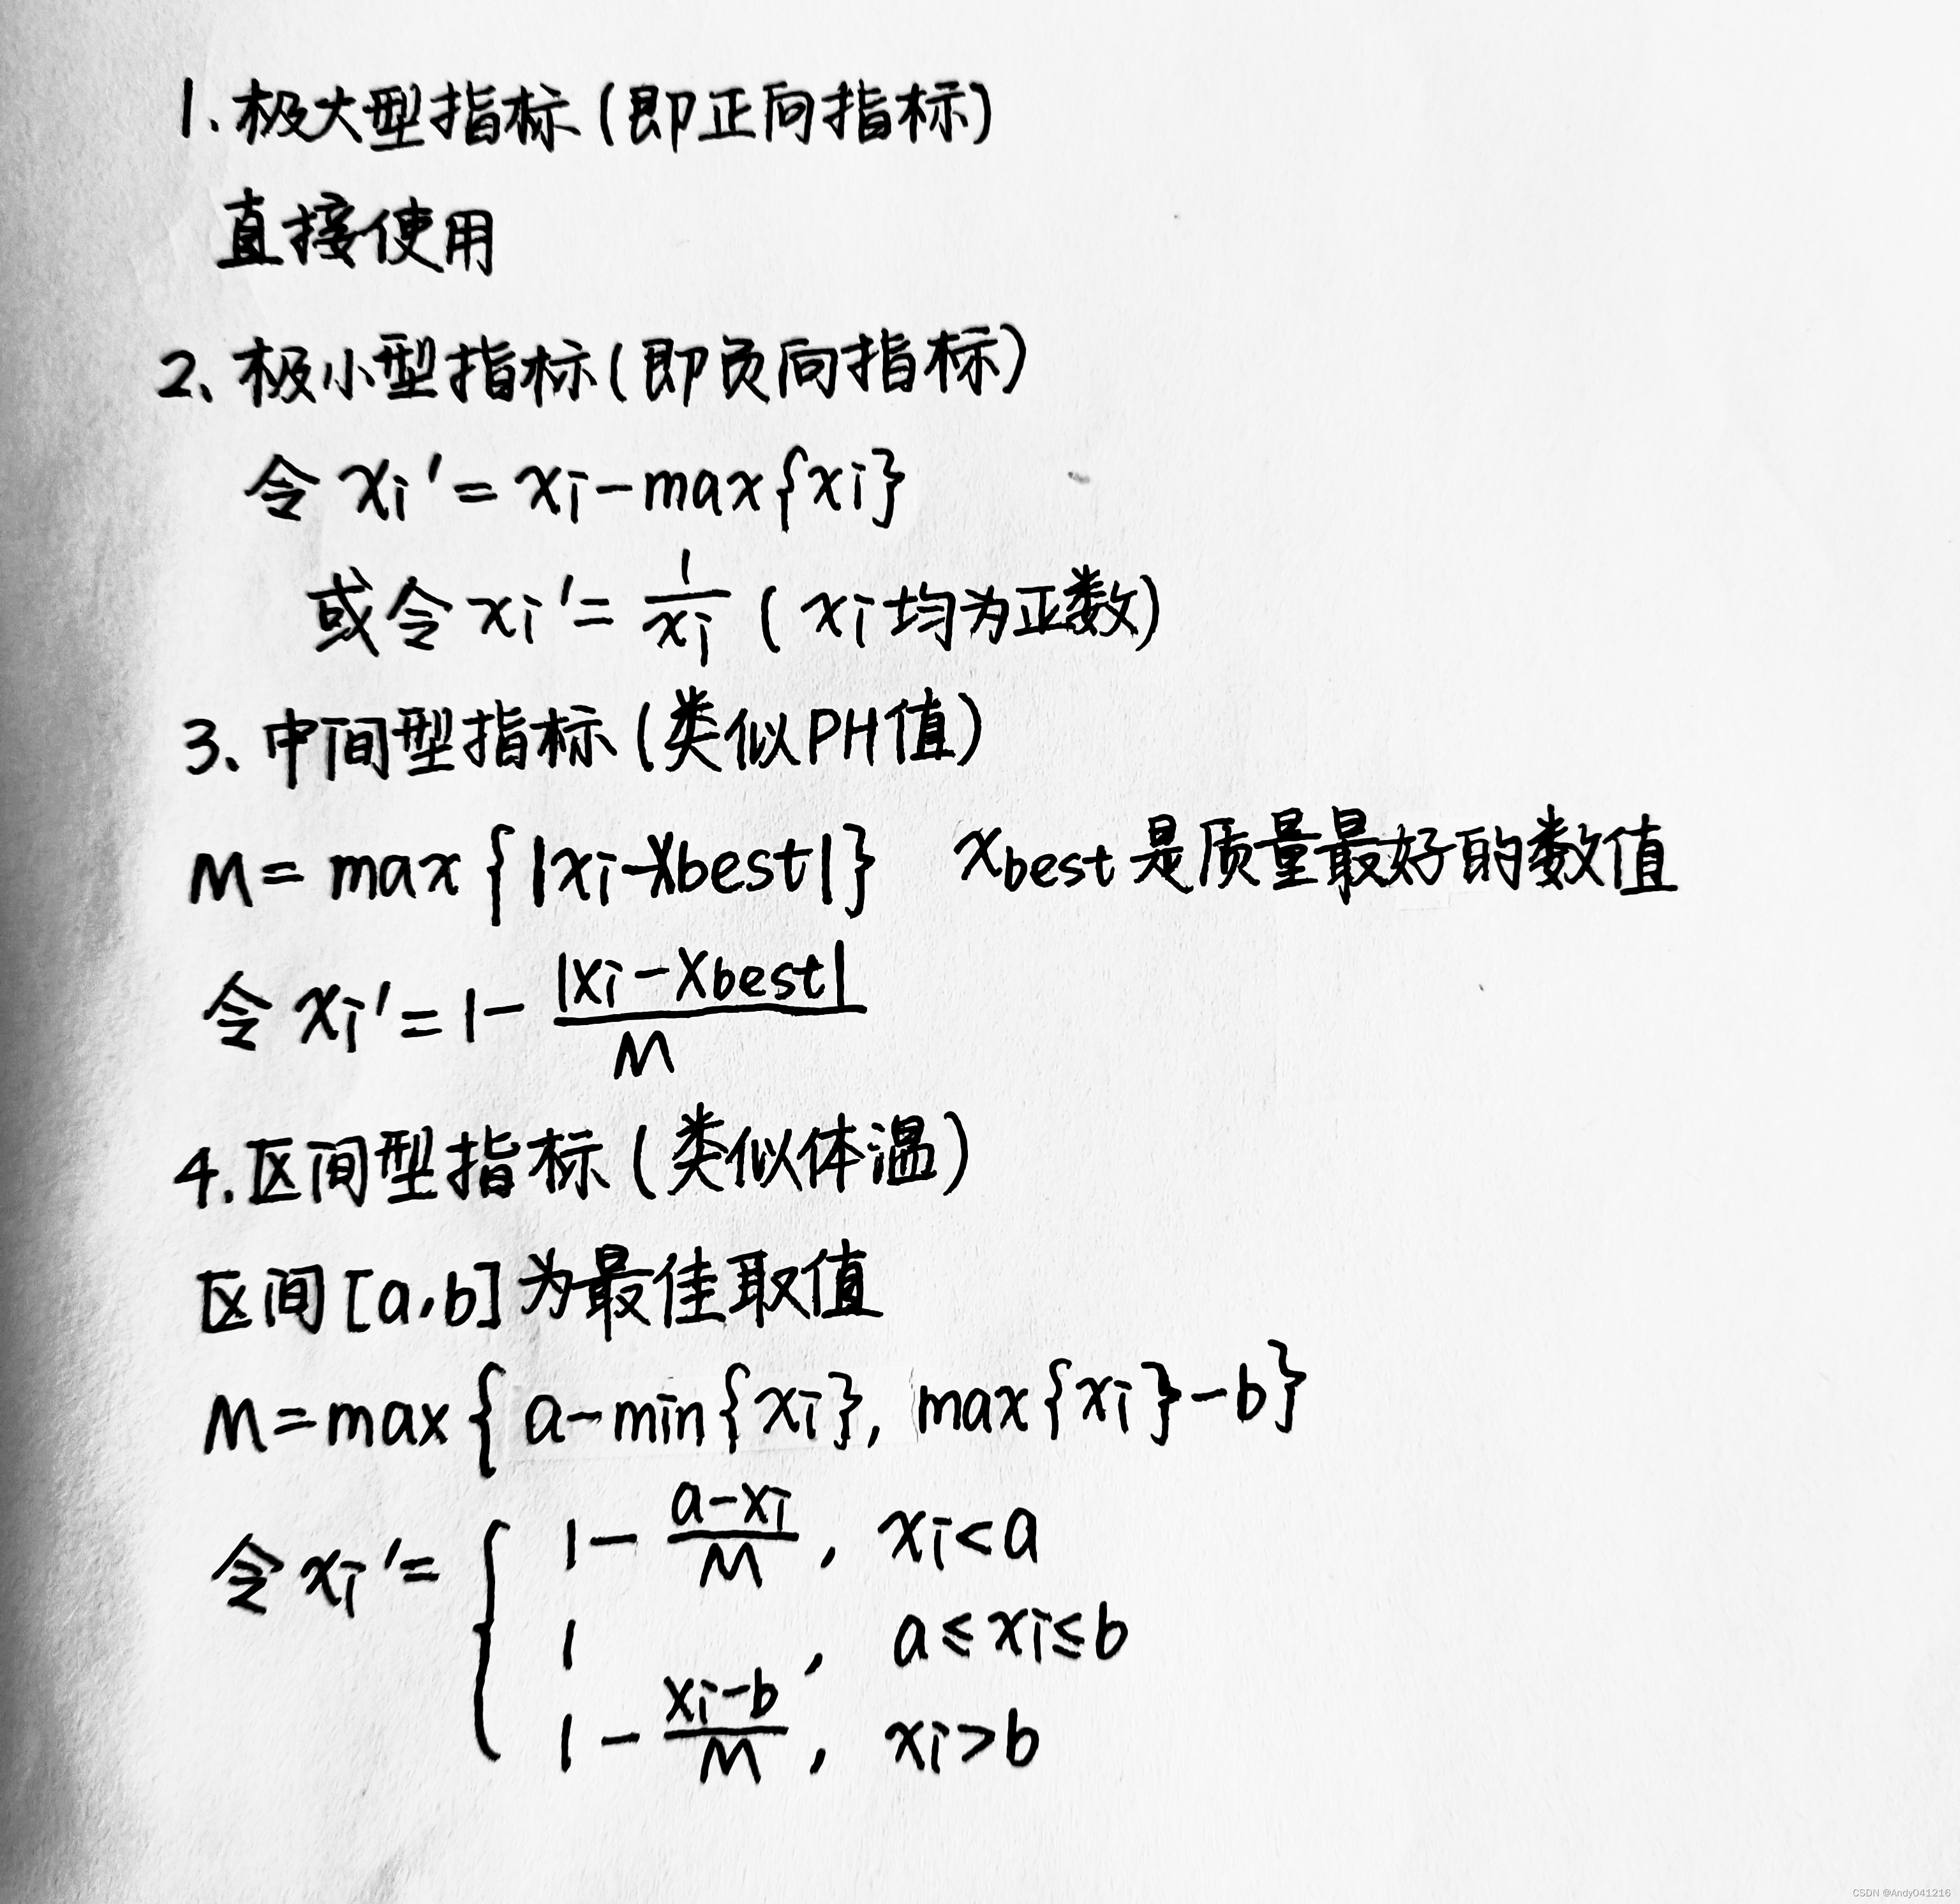 1. 极大型指标(即正向指标)
直接使用
2、极小型指标(即负向指标)
令 xi' = xi - max{xi}
或令 xi' = 1/xi ( xi 均为正数)
3、中间型指标(类似PH值)
M = max{|xi - xbest|} xbest 是质量最好的数值
令 xi' = 1 - |xi - xbest|/M
4. 区间型指标(类似体温)
区间[a,b]为最佳取值
M = max{ a - min{xi}, max{xi} - b}
令 xi' = {
1 - (a - xi)/M, xi < a
1, a ≤ xi ≤ b
1 - (xi - b)/M, xi > b
CSDN @Andy041216